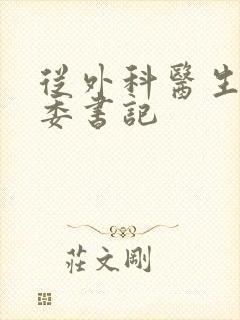 從外科醫生
委書記
莊文剛